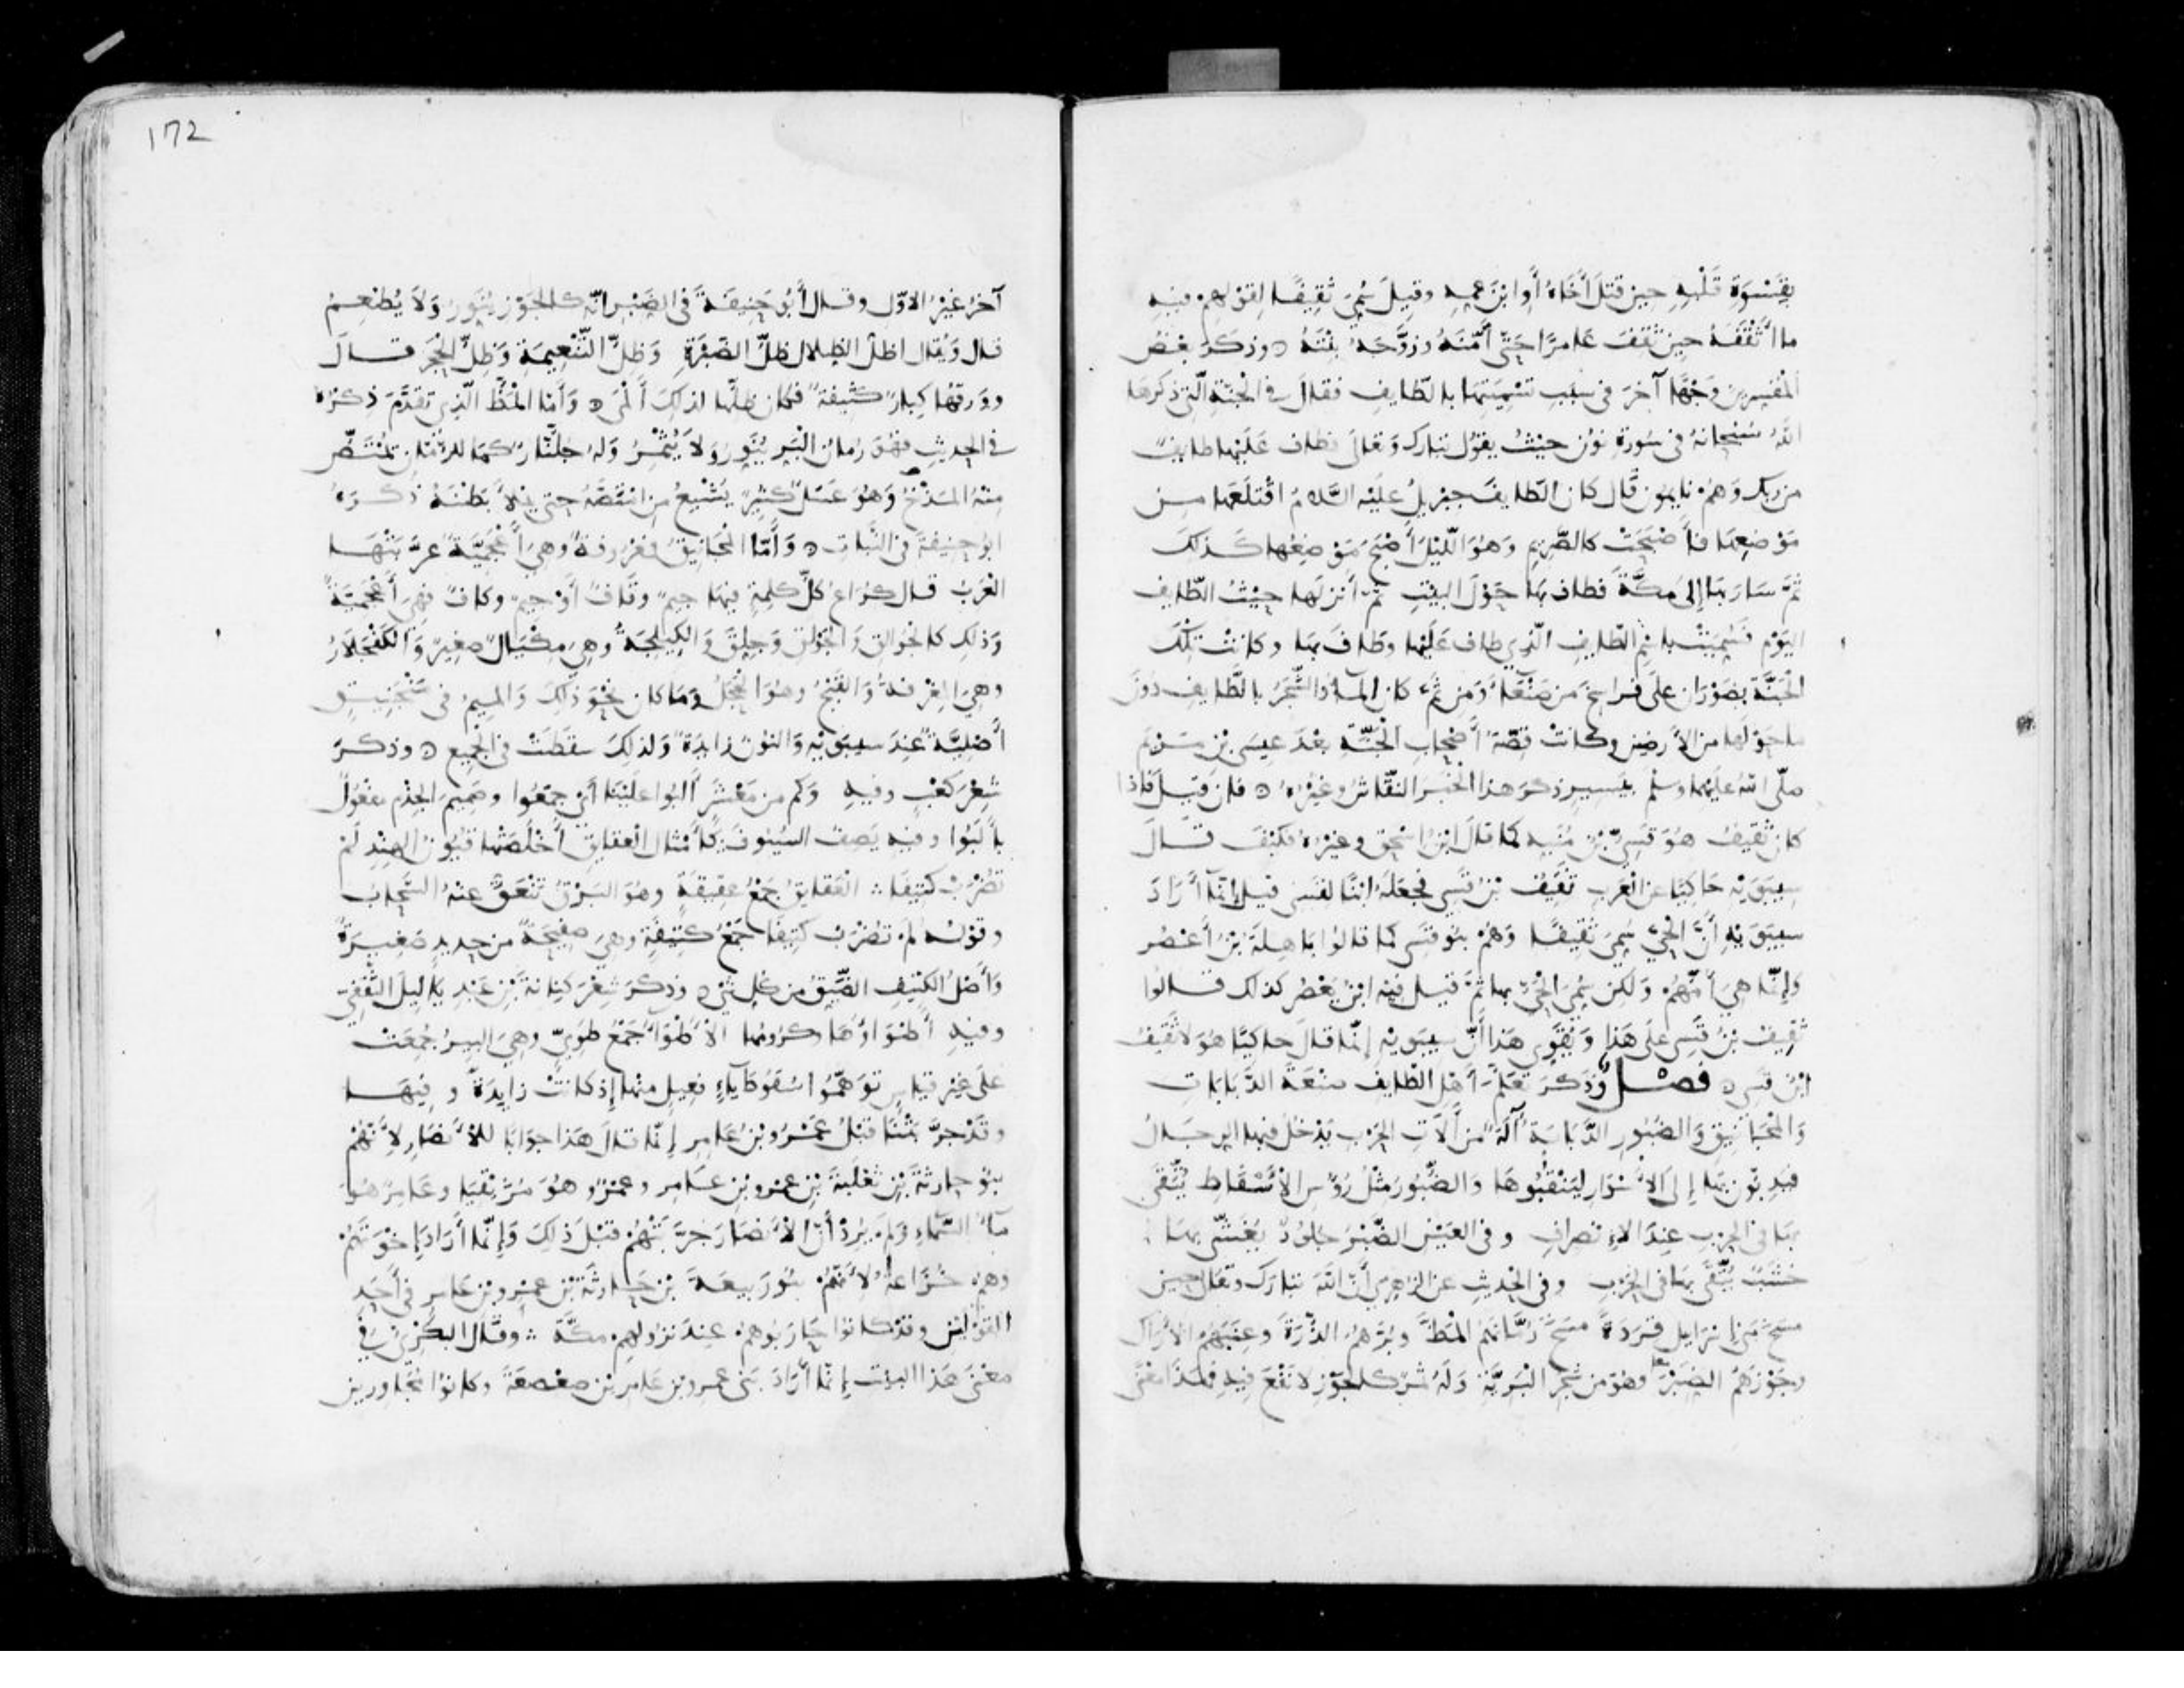 بقسوة قلبه حين قتل أخاه أو ابن عمه وقيل سمي ثقيفا لقولهم فيه
ما أثقفه حين ثقف عامرا حتى أمنه وزوجه بنته ٥ وذكر بعض
المفسرين وجها آخر في سبب تسميتها بالطايف فقال في الجنة التي ذكرها
الله سبحانه في سورة نون حيث يقول تبارك وتعالى فطاف عليها طايف
من ربك وهم نايمون قال كان الطايف جبريل عليه السلام اقتلعها من
موضعها فأصبحت كالصريم وهو الليل أصبح موضعها كذلك
ثم سار بها إلى مكة فطاف بها حول البيت ثم أنزلها حيث الطايف
اليوم فسميت باسم الطايف الذي طاف عليها وطاف بها وكانت تلك
الجنة بضوران على فراسخ من صنعاء ومن ثم كان الماء والشجر بالطايف دون
ما حولها من الأرضين وكانت قصة أصحاب الجنة بعد عيسى بن مريم
صلى الله عليهما وسلم بيسير ذكر هذا الخبر النقاش وغيره ٥ فإن قيل فإذا
كان ثقيف هو قسي بن منبه كما قال ابن اسحق وغيره فكيف قال
سيبويه حاكيا عن العرب ثقيف بن قسي فجعله ابنا لقسي قيل إنما أراد
سيبويه أن الحي سمي ثقيفا وهم بنو قسي كما قالوا باهلة بن أعصر
وإنما هي أمهم ولكن سمي الحي بها ثم قيل فيه ابن يعصر كذلك قالوا
ثقيف بن قسي على هذا ويقوي هذا أن سيبويه إنما قال حاكيا هو لا ثقيف
ابن قسي ٥ فصل وذكر تعلم أهل الطايف صنعة الدبابات
والمجانيق والضبور الدبابة آلة من آلات الحرب يدخل فيها الرجال
فيدبون بها إلى الأسوار لينقبوها والضبور مثل رؤس الأسفاط يتقى
بها في الحرب عند الانصراف وفي العين الضبر جلود يغشى بها
خشب يتقى بها في الحرب وفي الحديث عن الزهري أن الله تبارك وتعالى حين
مسخ بني إسرايل قردة مسخ رمانهم المظ وبرهم الذرة وعنبهم الأراك
وجوزهم الضبر وهو من شجر البرية وله ثمر كالجوز لا نفع فيه فهذا معنى
آخر غير الاول وقال أبو حنيفة في الضبر انه كالجوز ينور ولا يطعم
قال ويقال اظل الظلال ظل الضبرة وظل التنعيمة وظل الحجر قال
وورقها كبار كثيفة فكان ظلها لذلك ألمى ٥ وأما المظ الذي تقدم ذكره
في الحديث فهو رمان البر ينور ولا يثمر وله جلنار كما للرمان يمتص
منه المذخ وهو عسل كثير يشبع من امتصه حتى يملأ بطنه ذكره
ابو حنيفة في النبات ٥ وأما المجانيق فمعروفة وهي أعجمية عربتها
العرب قال كراع كل كلمة فيها جيم وقاف أو جيم وكاف فهي أعجمية
وذلك كالجوالق والجولق وجلق والكيلجة وهي مكيال صغير والكفجلار
وهي المغرفة والقبج وهو الحجل وما كان نحو ذلك والميم في منجنيق
أصلية عند سيبويه والنون زايدة ولذلك سقطت في الجميع ٥ وذكر
شعر كعب وفيه وكم من معشر ألبوا علينا أي جمعوا وصميم الجذم مفعول
بألبوا وفيه يصف السيوف كأمثال العقايق أخلصتها قيون الهند لم
تضرب كتيفا ∴ العقايق جمع عقيقة وهو البرق تنعق عنه السحاب
وقوله لم تضرب كتيفا جمع كتيفة وهي صفيحة من حديد صغيرة
وأصل الكتيف الضيق من كل شي ٥ وذكر شعر كنانة بن عبد ياليل الثقفي
وفيه أطواؤها وكرومها الأطواء جمع طوي وهي البير جمعت
على غير قياس توهموا سقوط ياء فعيل منها إذ كانت زايدة وفيها
وقد جربتنا قبل عمرو بن عامر إنما قال هذا جوابا للأنصار لأنهم
بنو حارثة بن ثعلبة بن عمرو بن عامر وعمرو هو مزيقيا وعامر هو
ماء السماء ولم يرد أن الأنصار جربتهم قبل ذلك وإنما أراد إخوتهم
وهم خزاعة لأنهم بنو ربيعة بن حارثة بن عمرو بن عامر في أحد
القولين وقد كانوا حاربوهم عند نزولهم مكة ∴ وقال البكري في
معنى هذا البيت إنما أراد بني عمرو بن عامر بن صعصعة وكانوا مجاورين
172